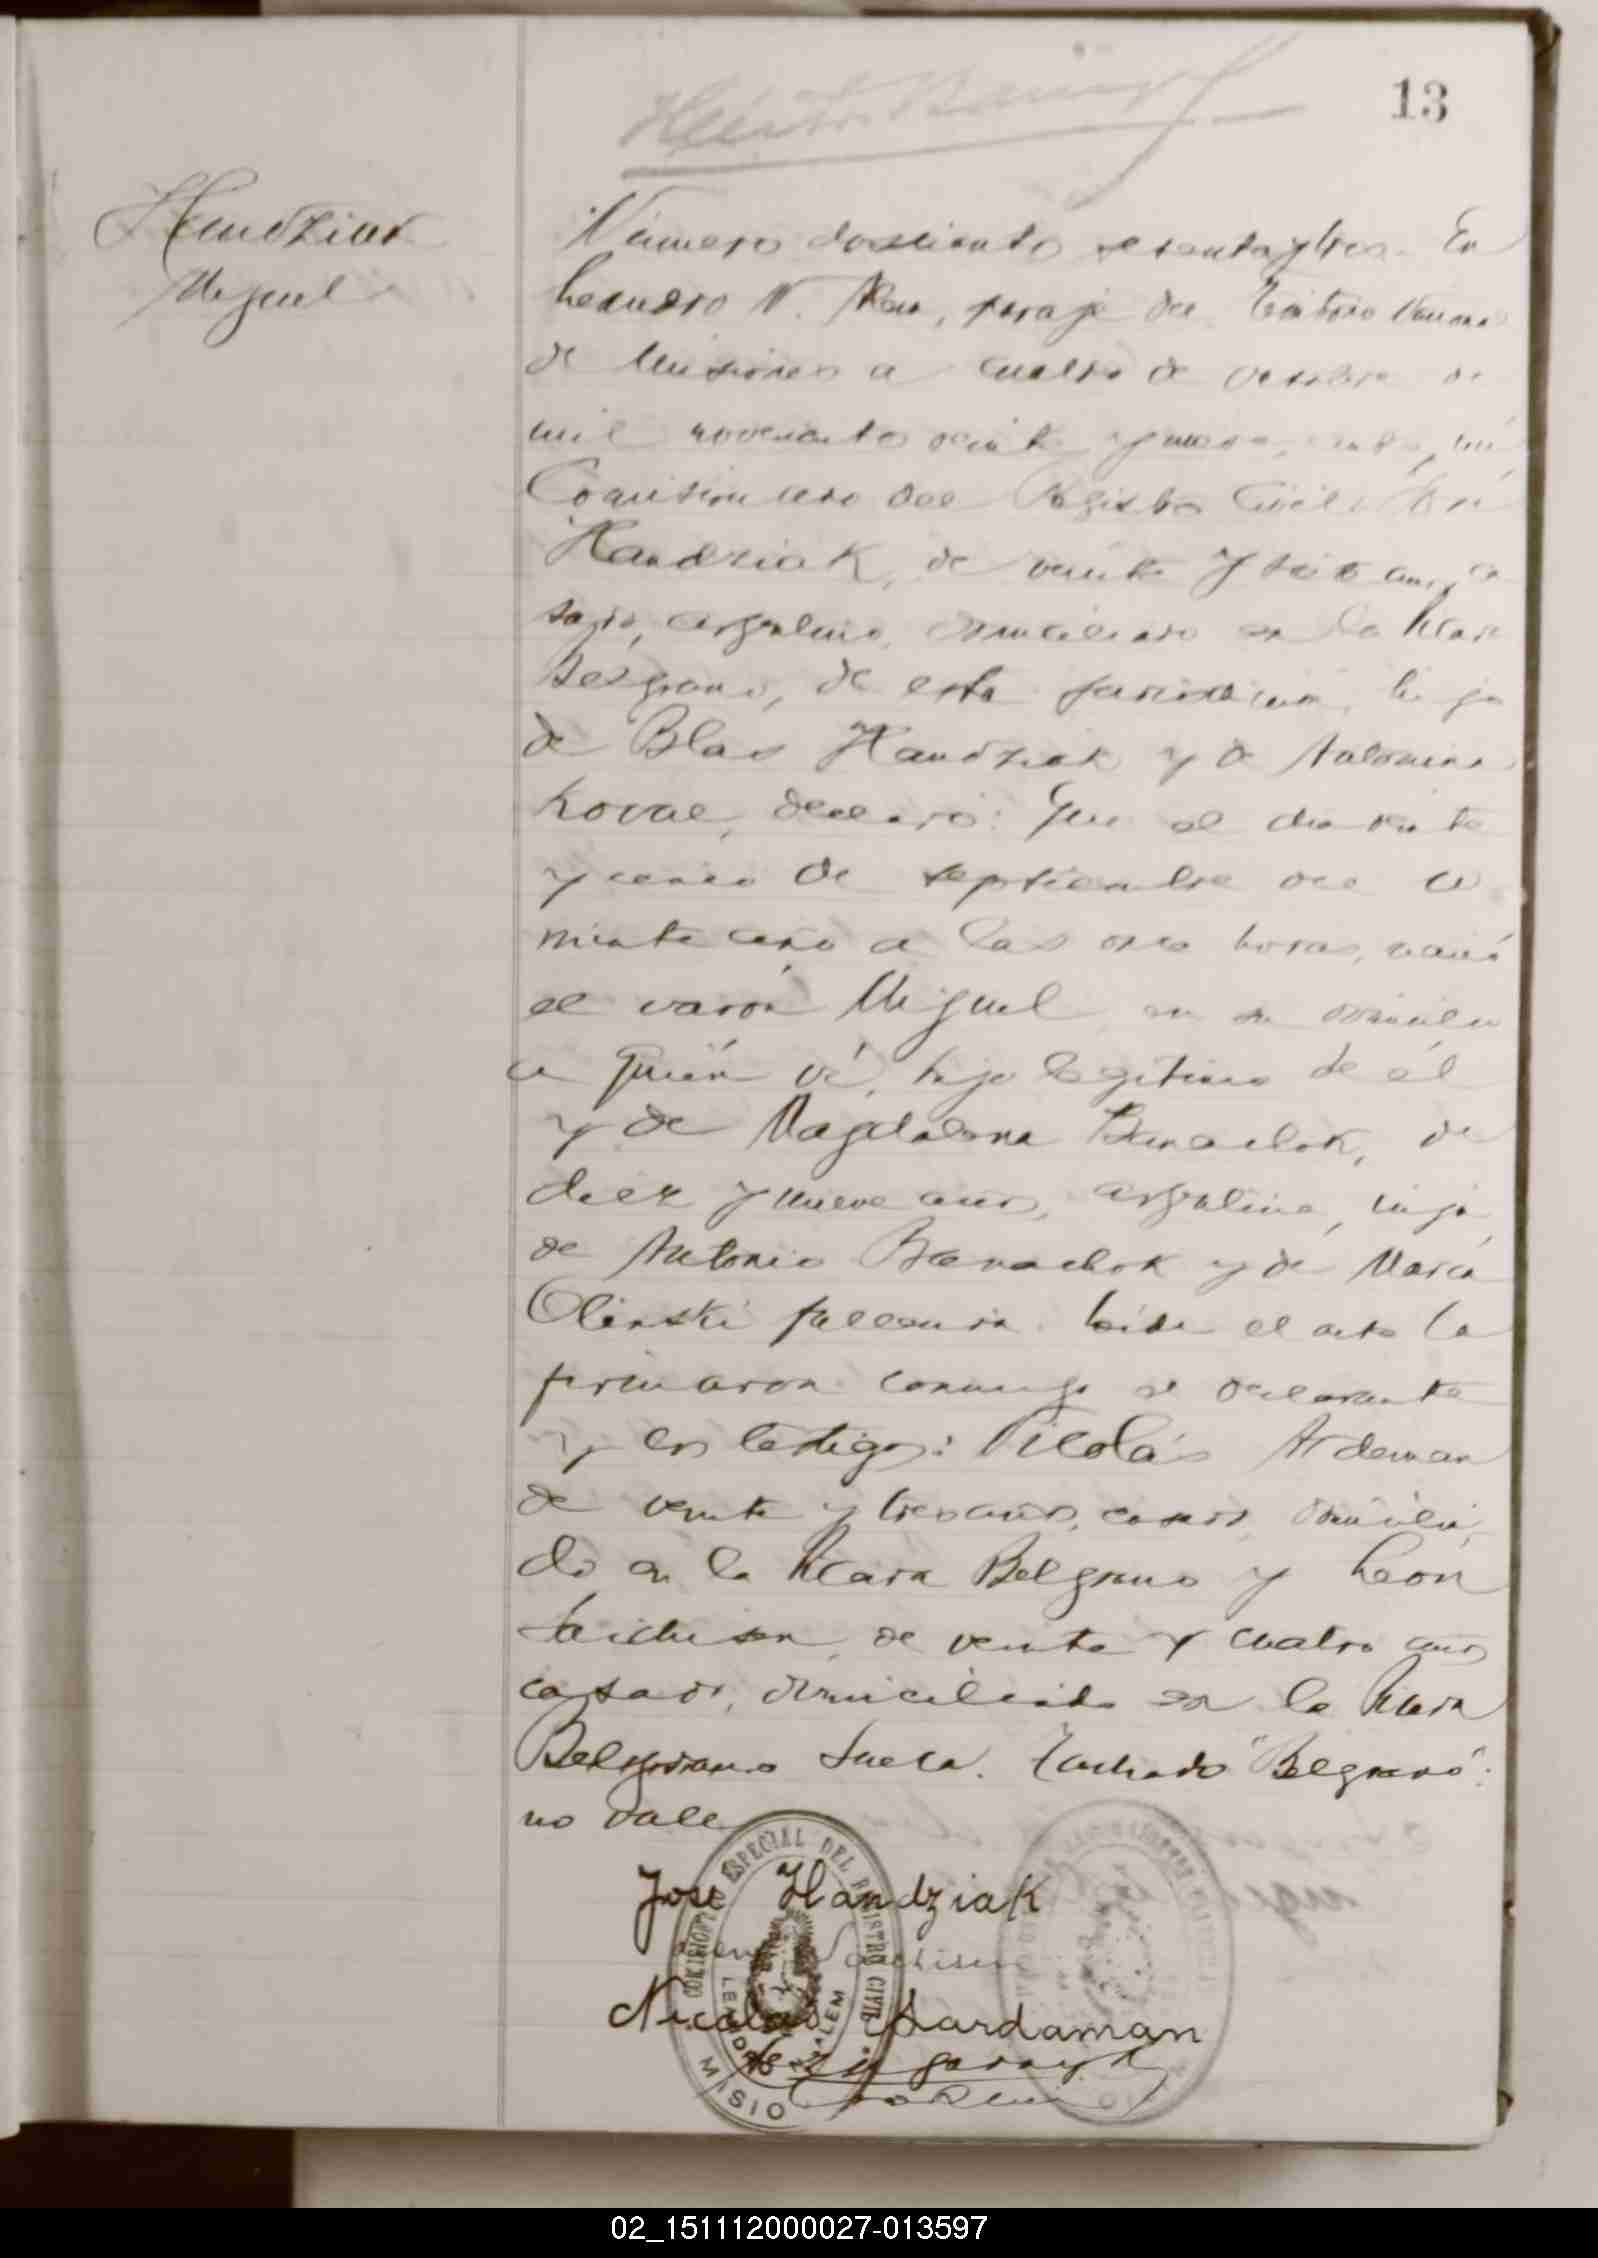 13
Handziak
Miguel
Número doscientos sesenta y tres. En
Leandro N. Alem, paraje del Territorio Nacional
de Misiones a cuatro de octubre de
mil novecientos veinte y nueve, ante mí
Comisionado del Registro Civil José
Handziak, de veinte y seis años, ca
sado, argentino, domiciliado en la Picada
Belgrano, de esta jurisdicción, hijo
de Blas Handziak y de Antonina
Koval, declaró: Que el día veinte
y cinco de septiembre del co
rriente año a las once horas, nació
el varón Miguel en su domicilio
a quién ví, hijo legítimo de él
y de Magdalena Banachok, de
diez y nueve años, argentina, hija
de Antonio Banachok y de María
Olinski fallecida. Leída el acta la
firmaron conmigo el declarante
y los testigos: Nicolás Ardeman
de veinte y tres años, casado, domicilia
do en la Picada Belgrano y León
de veinte y cuatro años
casado, domiciliado en la Picada
Belgrano Sueca. Tachado "Belgrano":
no vale
José Handziak
Nicolas Hardaman
COMISION ESPECIAL DEL REGISTRO CIVIL
LEANDRO N. ALEM
MISIO
02_151112000027-013597